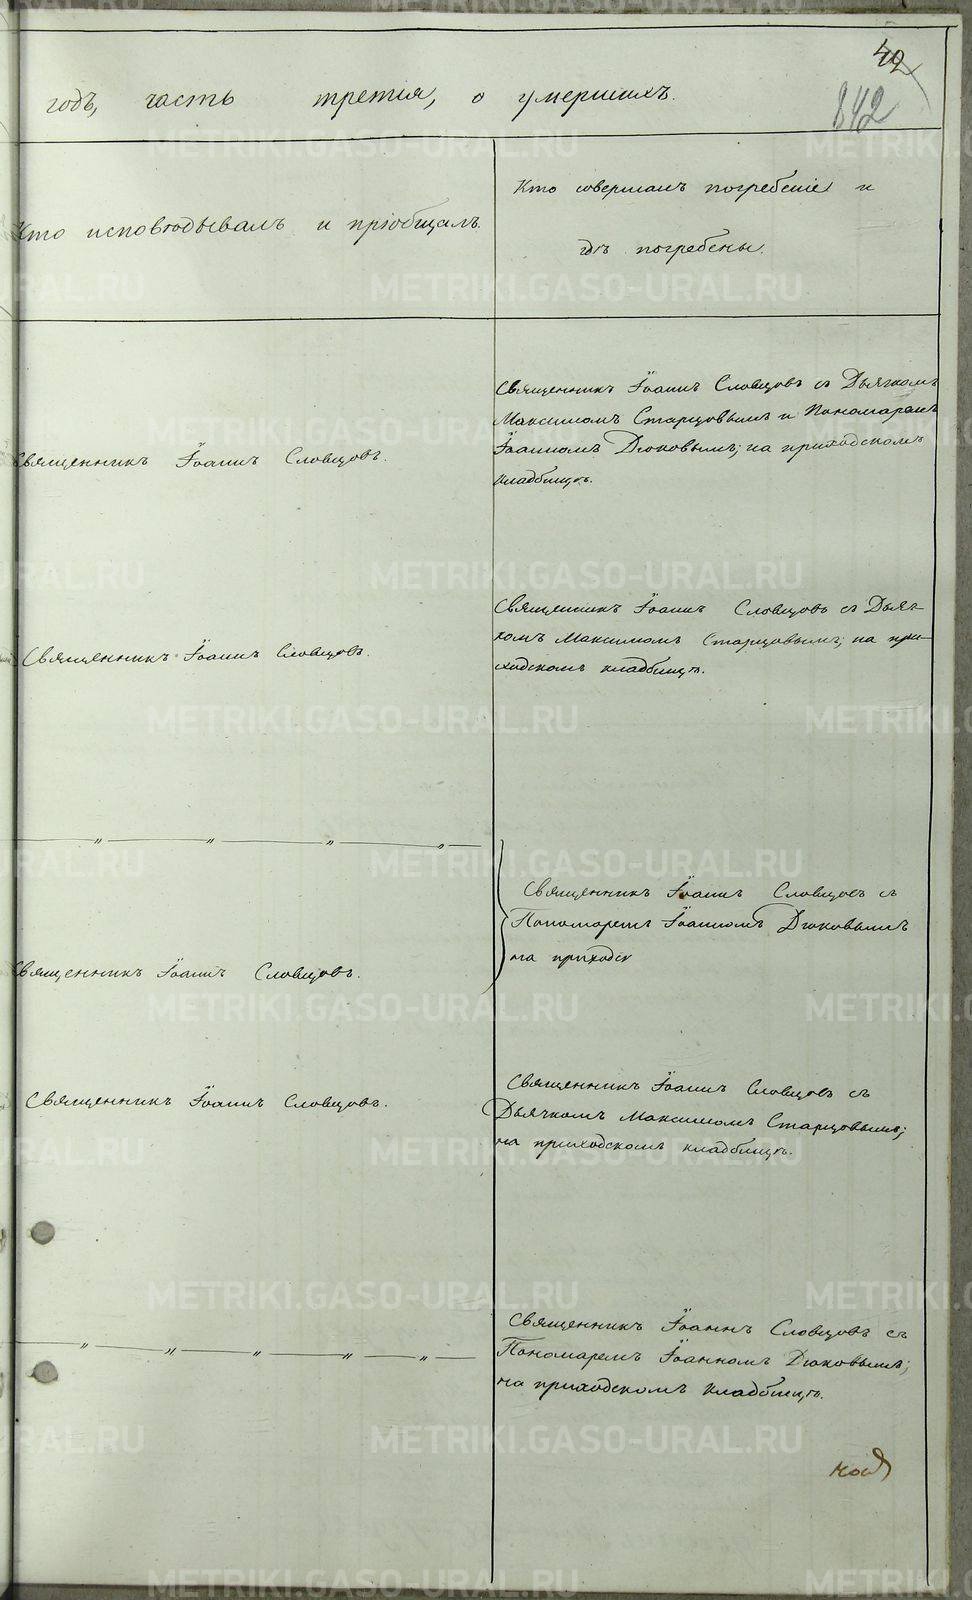 42
842
годъ, часть третия, о умершихъ.
Кто исповѣдывалъ и пріобщалъ.
Кто совершалъ погребеніе и
гдѣ погребены.
Священникъ Іоаннъ Словцовъ.
Священникъ Іоаннъ Словцовъ съ Дьячкомъ
Максимомъ Старцовымъ и Пономаремъ
Іоанномъ Дюковымъ; на приходскомъ
кладбищѣ.
Священникъ Іоаннъ Словцовъ.
Священникъ Іоаннъ Словцовъ съ Дьяч-
комъ Максимомъ Старцовымъ; на при-
ходскомъ кладбищѣ.
— „ — „ — „ — „ —
Священникъ Іоаннъ Словцовъ.
Священникъ Іоаннъ Словцовъ съ
Пономаремъ Іоанномъ Дюковымъ
на приходск
Священникъ Іоаннъ Словцовъ.
Священникъ Іоаннъ Словцовъ съ
Дьячкомъ Максимомъ Старцовымъ;
на приходскомъ кладбищѣ.
— „ — „ — „ — „ — „ —
Священникъ Іоаннъ Словцовъ съ
Пономаремъ Іоанномъ Дюковымъ;
на приходскомъ кладбищѣ.
METRIKI.GASO-URAL.RU